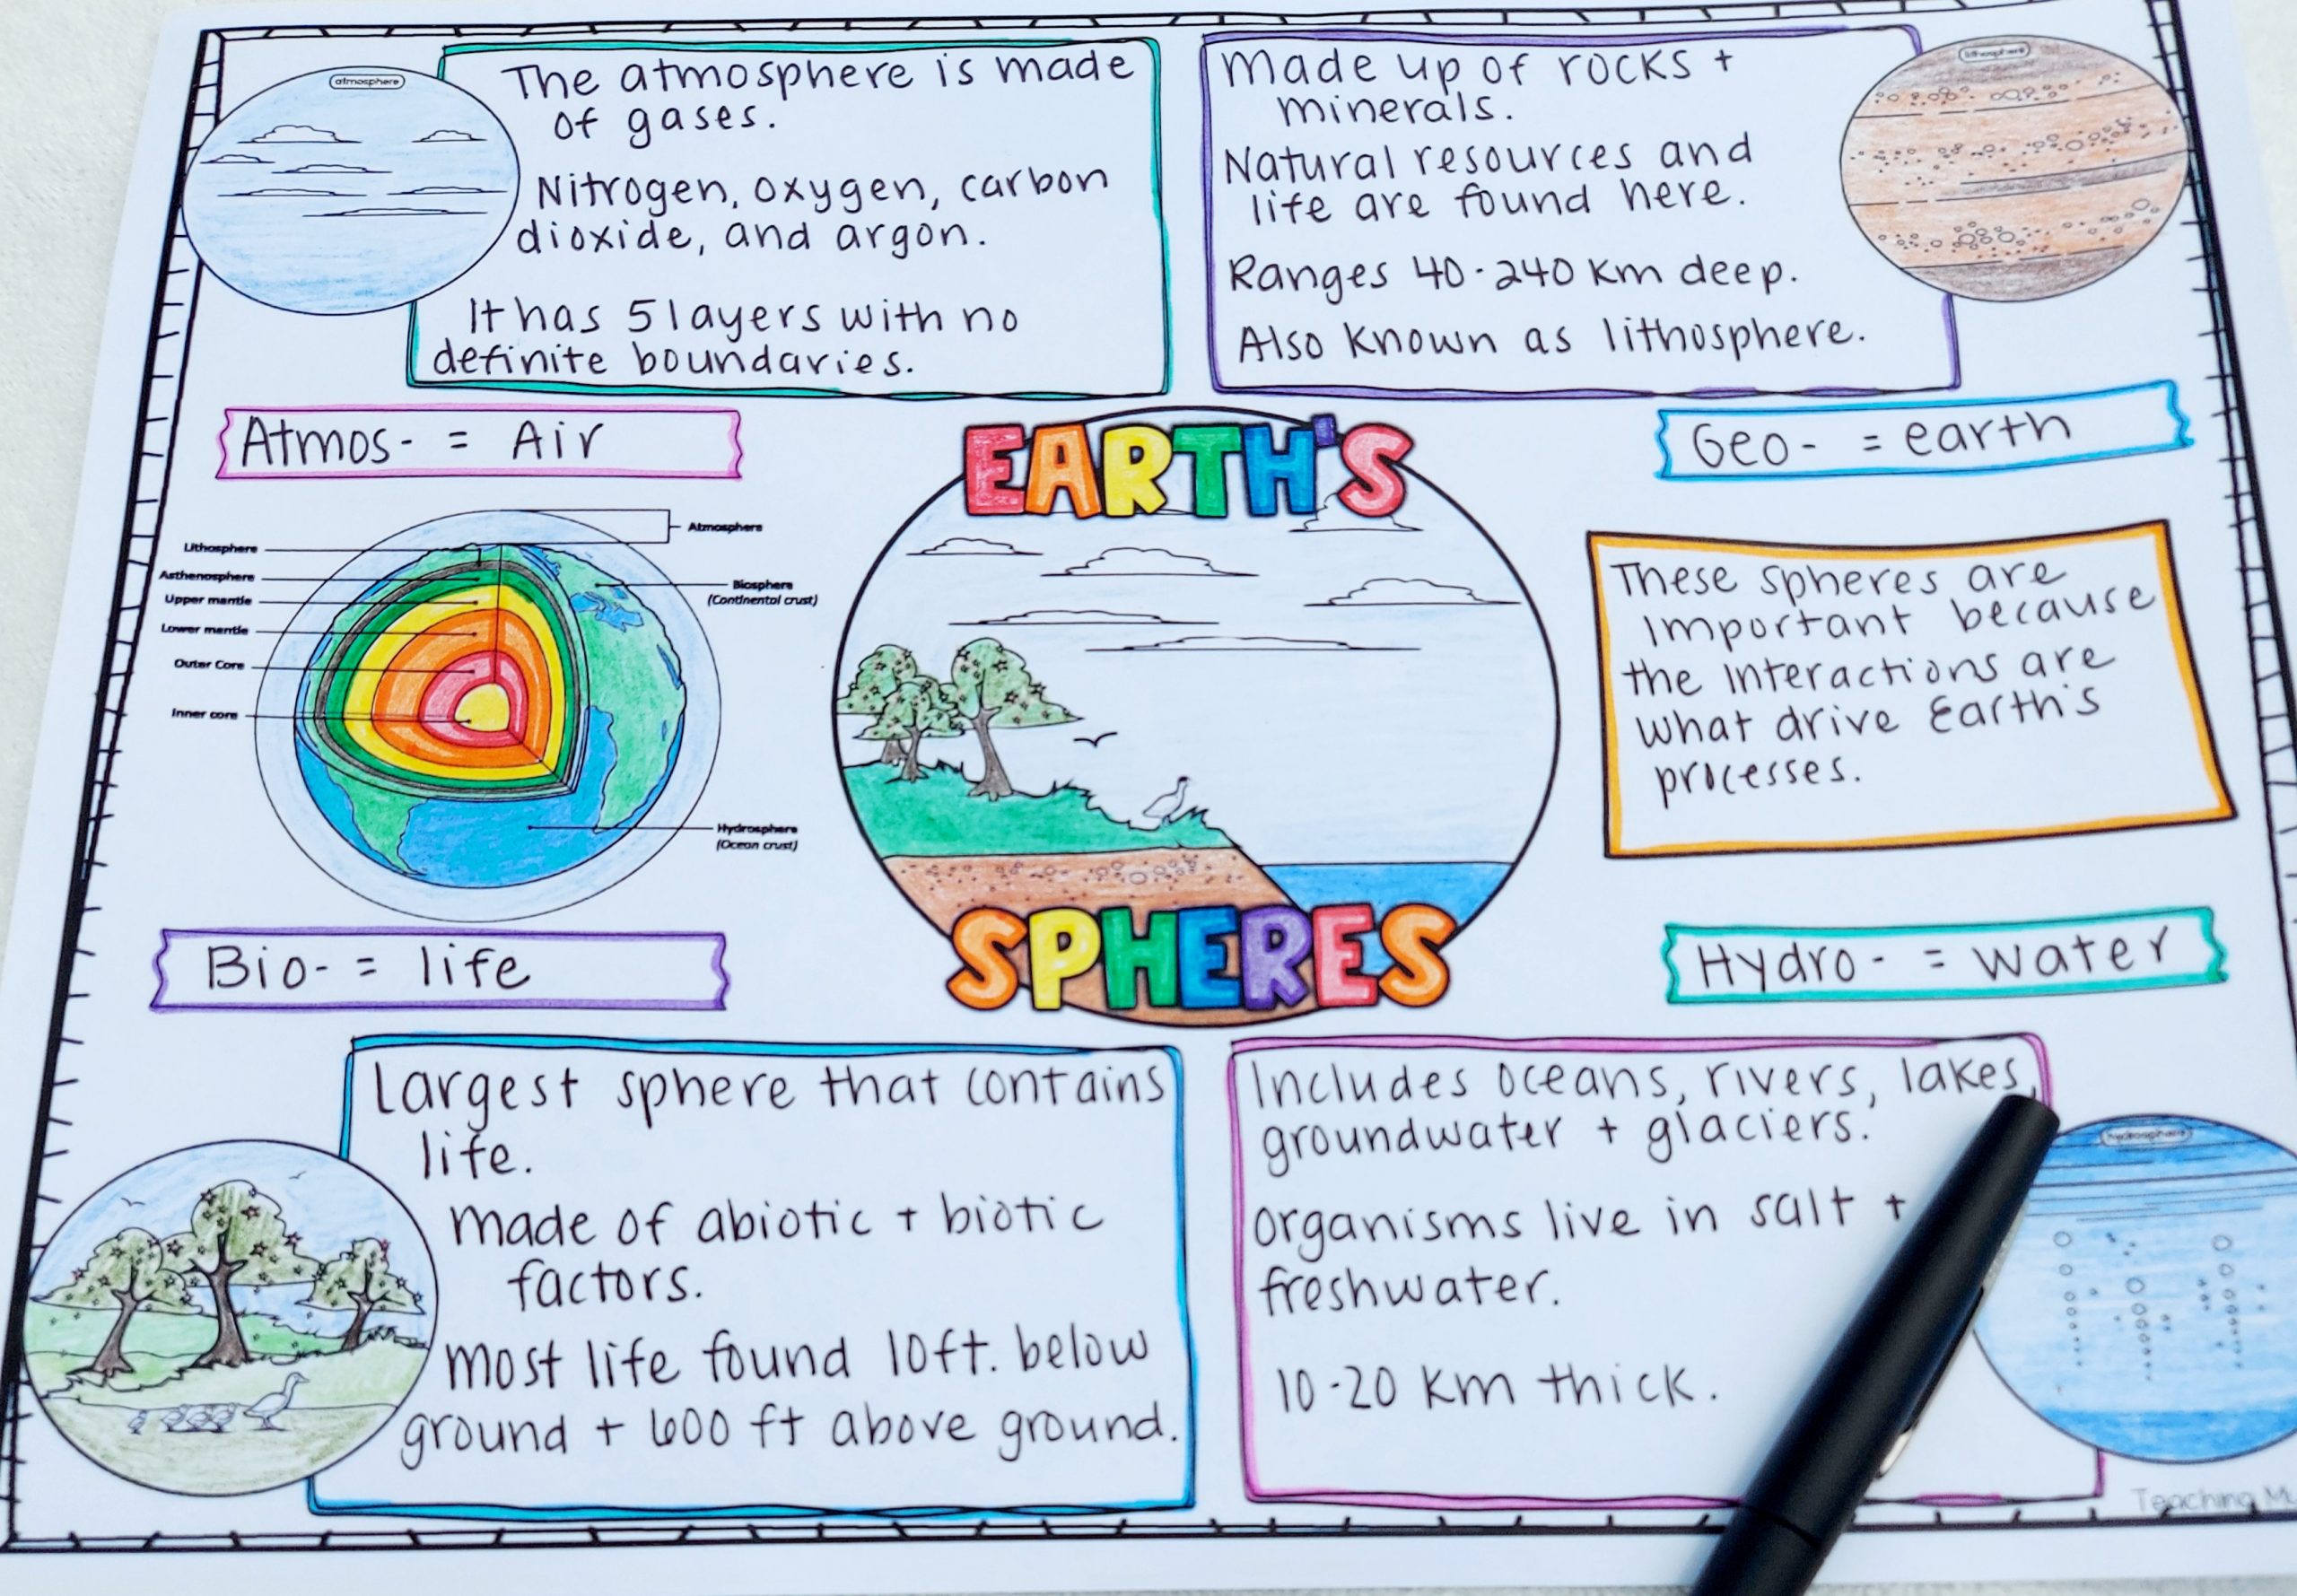 atmosphere
The atmosphere is made
of gases.
Nitrogen, oxygen, carbon
dioxide, and argon.
It has 5 layers with no
definite boundaries.
lithosphere
Made up of rocks +
minerals.
Natural resources and
life are found here.
Ranges 40-240 km deep.
Also known as lithosphere.
Atmos- = Air
EARTH'S
SPHERES
Geo- = earth
Lithosphere
Asthenosphere
Upper mantle
Lower mantle
Outer Core
Inner core
Atmosphere
Biosphere
(Continental crust)
Hydrosphere
(Ocean crust)
These spheres are
important because
the interactions are
what drive Earth's
processes.
Bio- = life
Hydro- = water
Largest sphere that contains
life.
Made of abiotic + biotic
factors.
Most life found 10ft. below
ground + 600 ft above ground.
Includes oceans, rivers, lakes,
groundwater + glaciers.
Organisms live in salt +
freshwater.
10-20 km thick.
hydrosphere
Teaching